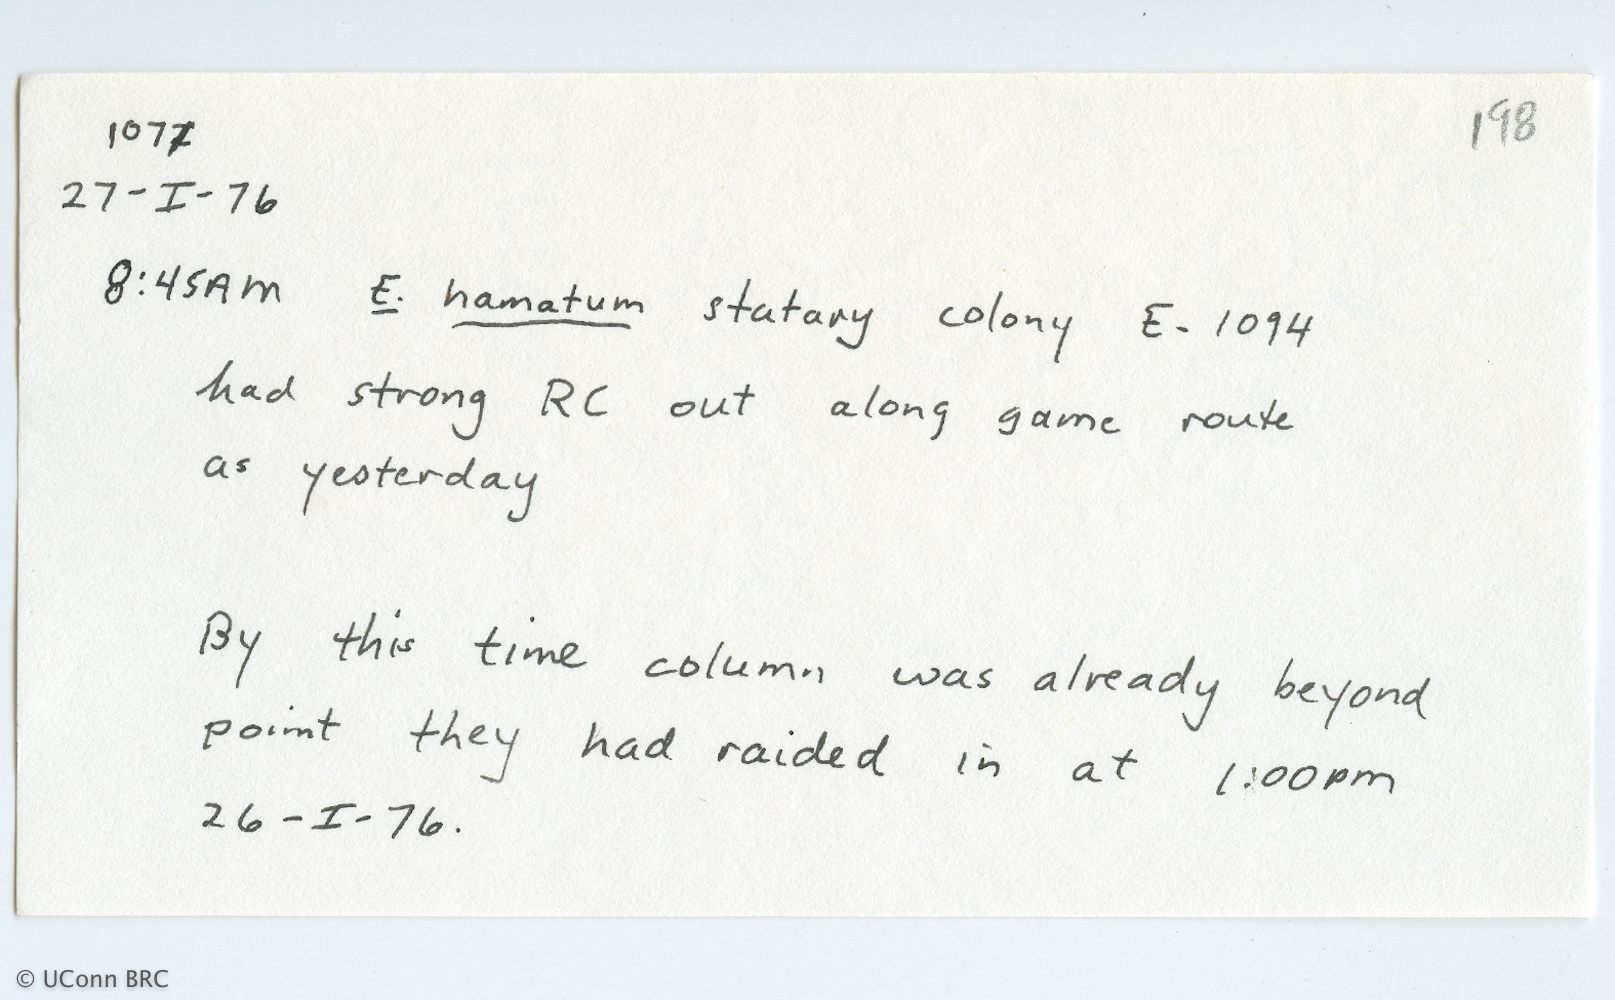 198
107
27-I-76
8:45AM E. hamatum statary colony E-1094
had strong RC out along game route
as yesterday
By this time column was already beyond
point they had raided in at 1:00pm
26-I-76.
© UConn BRC